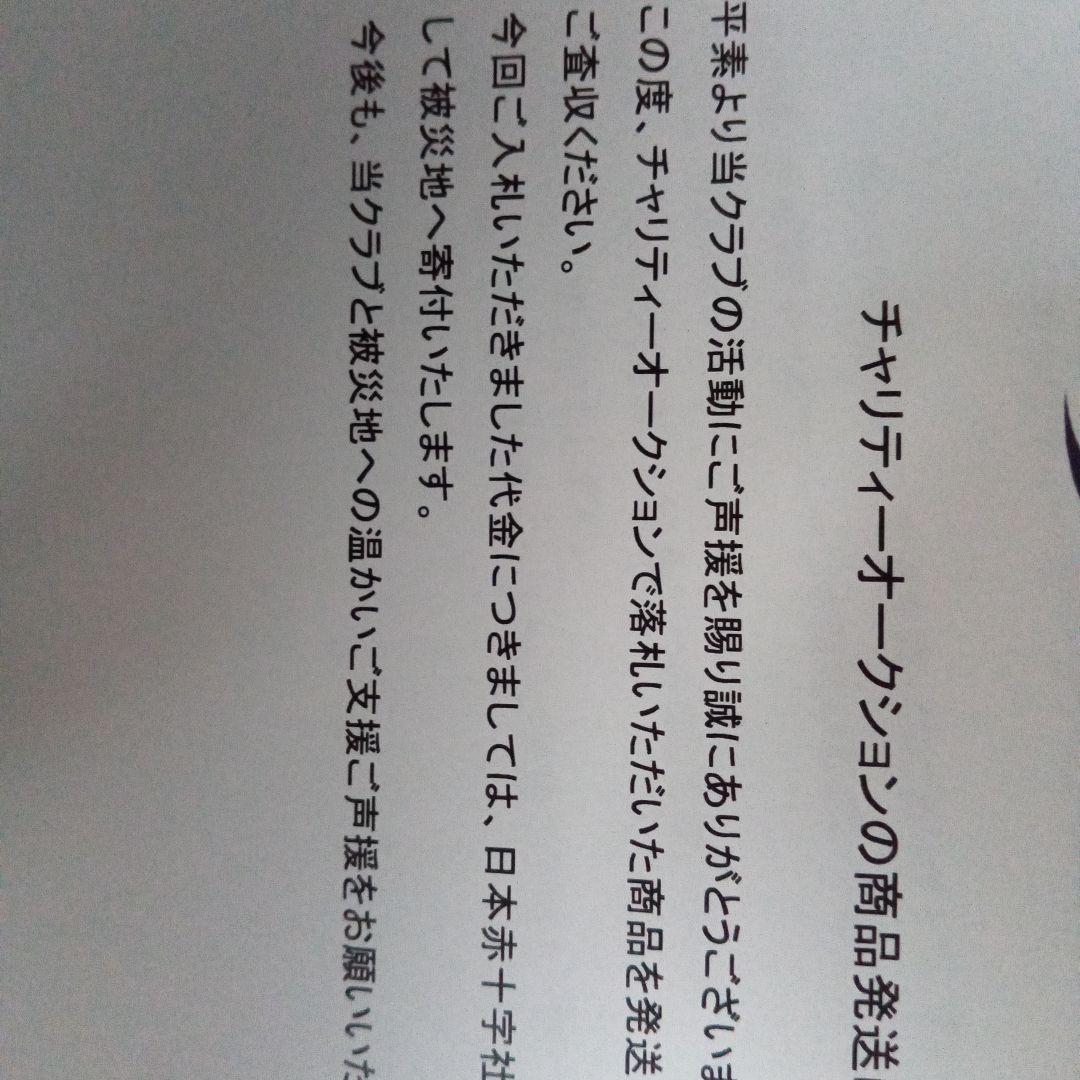 チャリティーオークションの商品発送
平素より当クラブの活動にご声援を賜り誠にありがとうございま
この度、チャリティーオークションで落札いただいた商品を発送
ご査収ください。
今回ご入札いただきました代金につきましては、日本赤十字社
して被災地へ寄付いたします。
今後も、当クラブと被災地への温かいご支援ご声援をお願いいた